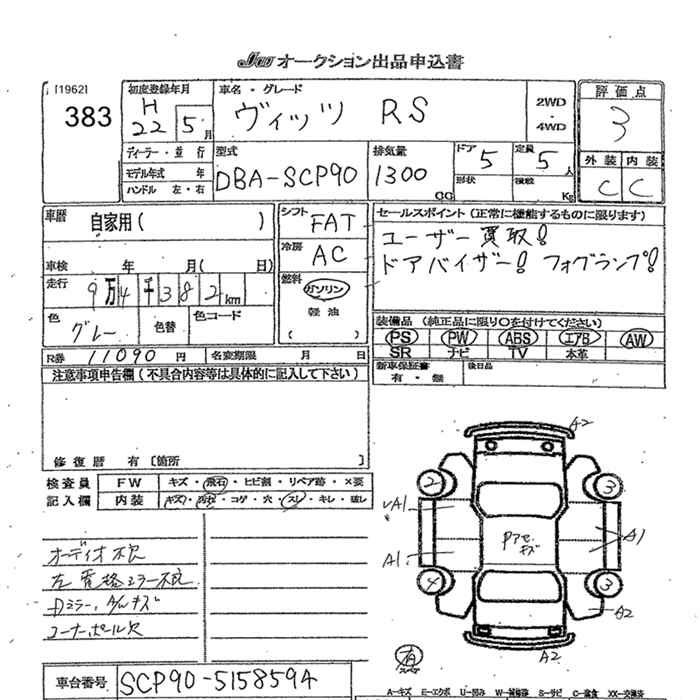 JU オークション出品申込書
[1962]
383
初度登録年月
H
22 5月
車名・グレード
ヴィッツ RS
2WD
・
4WD
評価点
3
外装 内装
C C
ディーラー・並行
モデル年式 年
ハンドル 左・右
型式
DBA-SCP90
排気量
1300
CC
ドア 5
形状
定員 5人
積載 Kg
車歴
自家用( )
車検 年 月( 日)
走行
9万4千382km
色
グレー
色替
色コード
シフト FAT
冷房 AC
燃料
ガソリン
軽油
( )
セールスポイント(正常に機能するものに限ります)
ユーザー買取!
ドアバイザー! フォグランプ!
装備品(純正品に限り○を付けてください)
PS PW ABS エアB AW
SR ナビ TV 本革
新車保証書
有・無
後日品
R券 11090円 名変期限 月 日
注意事項申告欄(不具合内容等は具体的に記入して下さい)
修復歴 有 〔箇所 〕
検査員
記入欄
FW キズ・飛石・ヒビ割・リペア跡・×要
内装 キズ・汚れ・コゲ・穴・スレ・キレ・破レ
オーディオ欠
コーナーポール欠
A2
2 3
A1 A1
A1
4 3
A2
A2
有
車台番号 SCP90-5158594
A-キズ E-エクボ U-凹み W-補修跡 S-サビ C-腐食 XX-交換済